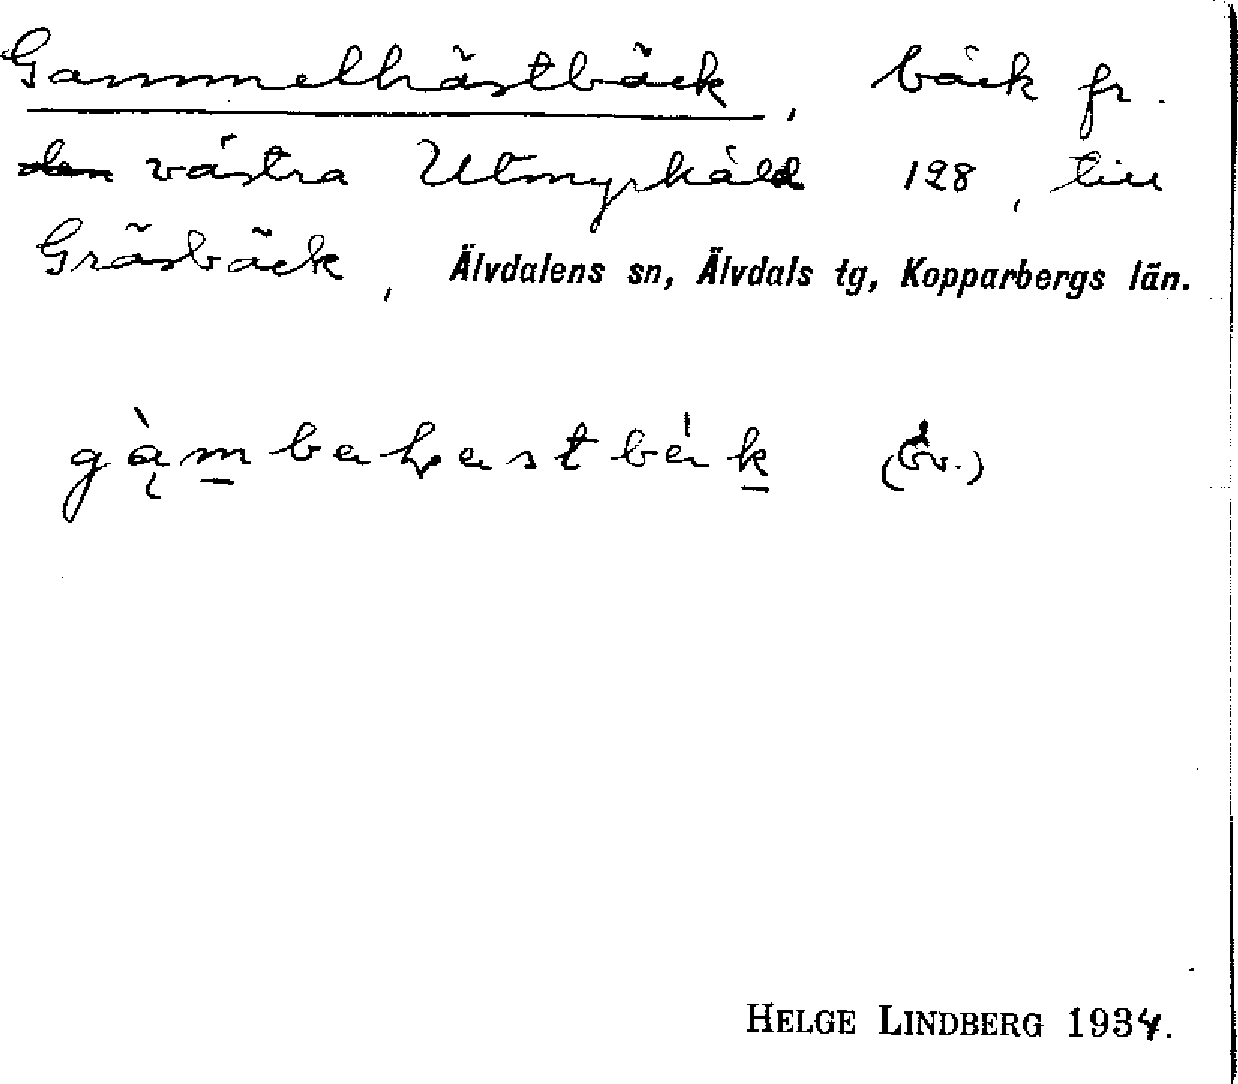 Gammelhästbäck, bäck fr.
den västra Utmyrkäld 128, till
Gräsbäck, Älvdalens sn, Älvdals tg, Kopparbergs län.
(Åv.)
HELGE LINDBERG 1934.